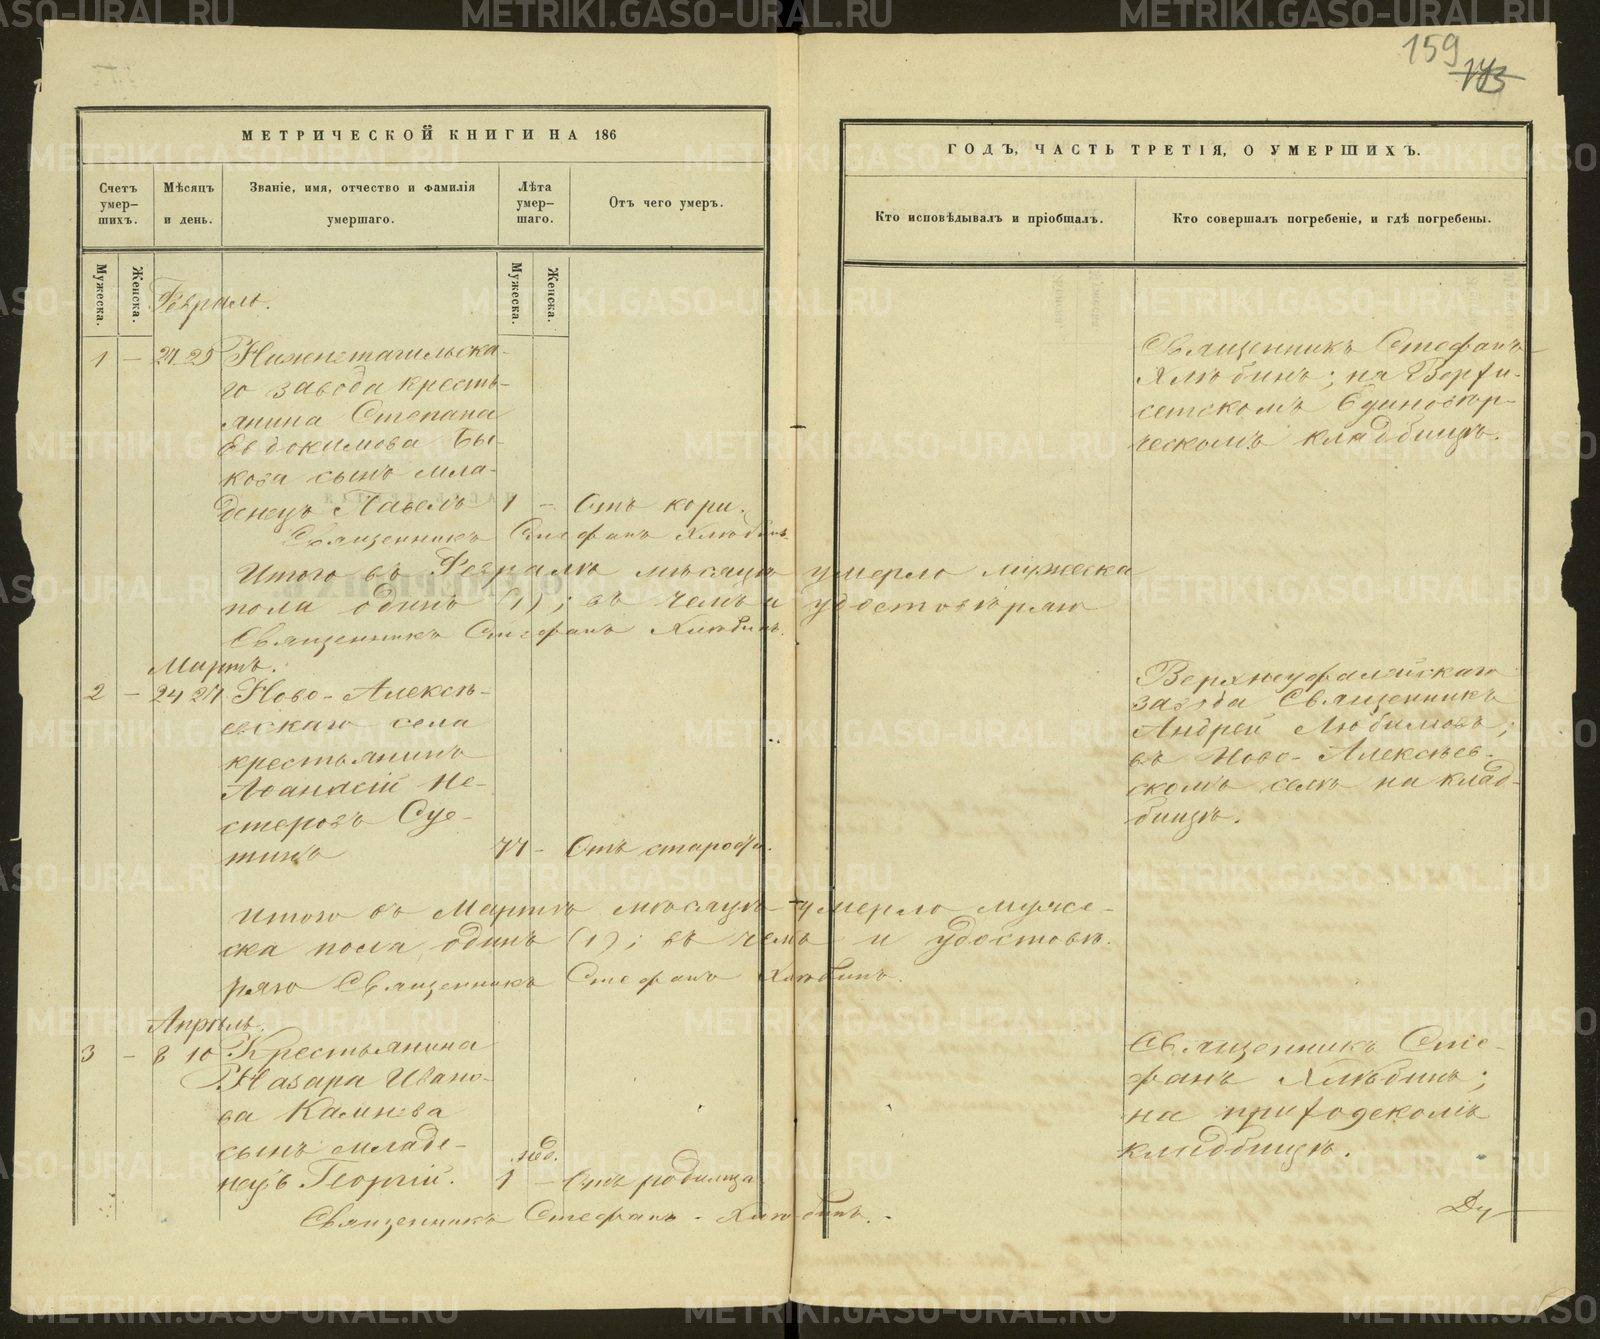 159
МЕТРИЧЕСКОЙ КНИГИ НА 186
ГОДЪ, ЧАСТЬ ТРЕТІЯ, О УМЕРШИХЪ.
Счетъ умер-шихъ.
Мѣсяцъ и день.
Званіе, имя, отчество и фамилія умершаго.
Лѣта умер-шаго.
Отъ чего умеръ.
Кто исповѣдывалъ и пріобщалъ.
Кто совершалъ погребеніе, и гдѣ погребены.
Мужеска.
Женска.
Мужеска.
Женска.
Февраль.
1 – 27 29 Нижнетагильска-
го завода кресть-
янина Степана
Евдокимова Бы-
кова сынъ мла-
денецъ Павелъ 1 – Отъ кори.
Священникъ Стефанъ
Хлѣбинъ; на Верхи-
сетскомъ Единовѣр-
ческомъ кладбищѣ.
Священникъ Стефанъ Хлѣбинъ
Итого въ Февралѣ мѣсяцѣ умерло мужеска
пола одинъ (1); въ чемъ и удостовѣряю
Священникъ Стефанъ Хлѣбинъ.
Мартъ.
2 – 24 27 Ново-Алексѣ-
евскаго села
крестьянинъ
Аѳанасій Не-
стеровъ Суе-
тинъ 77 – Отъ старости.
Верхнеуфалейскаго
завода Священникъ
Андрей Любимовъ;
въ Ново-Алексѣев-
скомъ селѣ на клад-
бищѣ.
Итого въ Мартѣ мѣсяцѣ умерло муже-
ска пола, одинъ (1); въ чемъ и удостовѣ-
ряю Священникъ Стефанъ Хлѣбинъ.
Апрѣль.
3 – 8 10 Крестьянина
Назара Ивано-
ва Камнева
сынъ младе-
нецъ Георгій. 1 нед. – Отъ родимца
Священникъ Сте-
фанъ Хлѣбинъ;
на приходскомъ
кладбищѣ.
Священникъ Стефанъ Хлѣбинъ.
METRIKI.GASO-URAL.RU